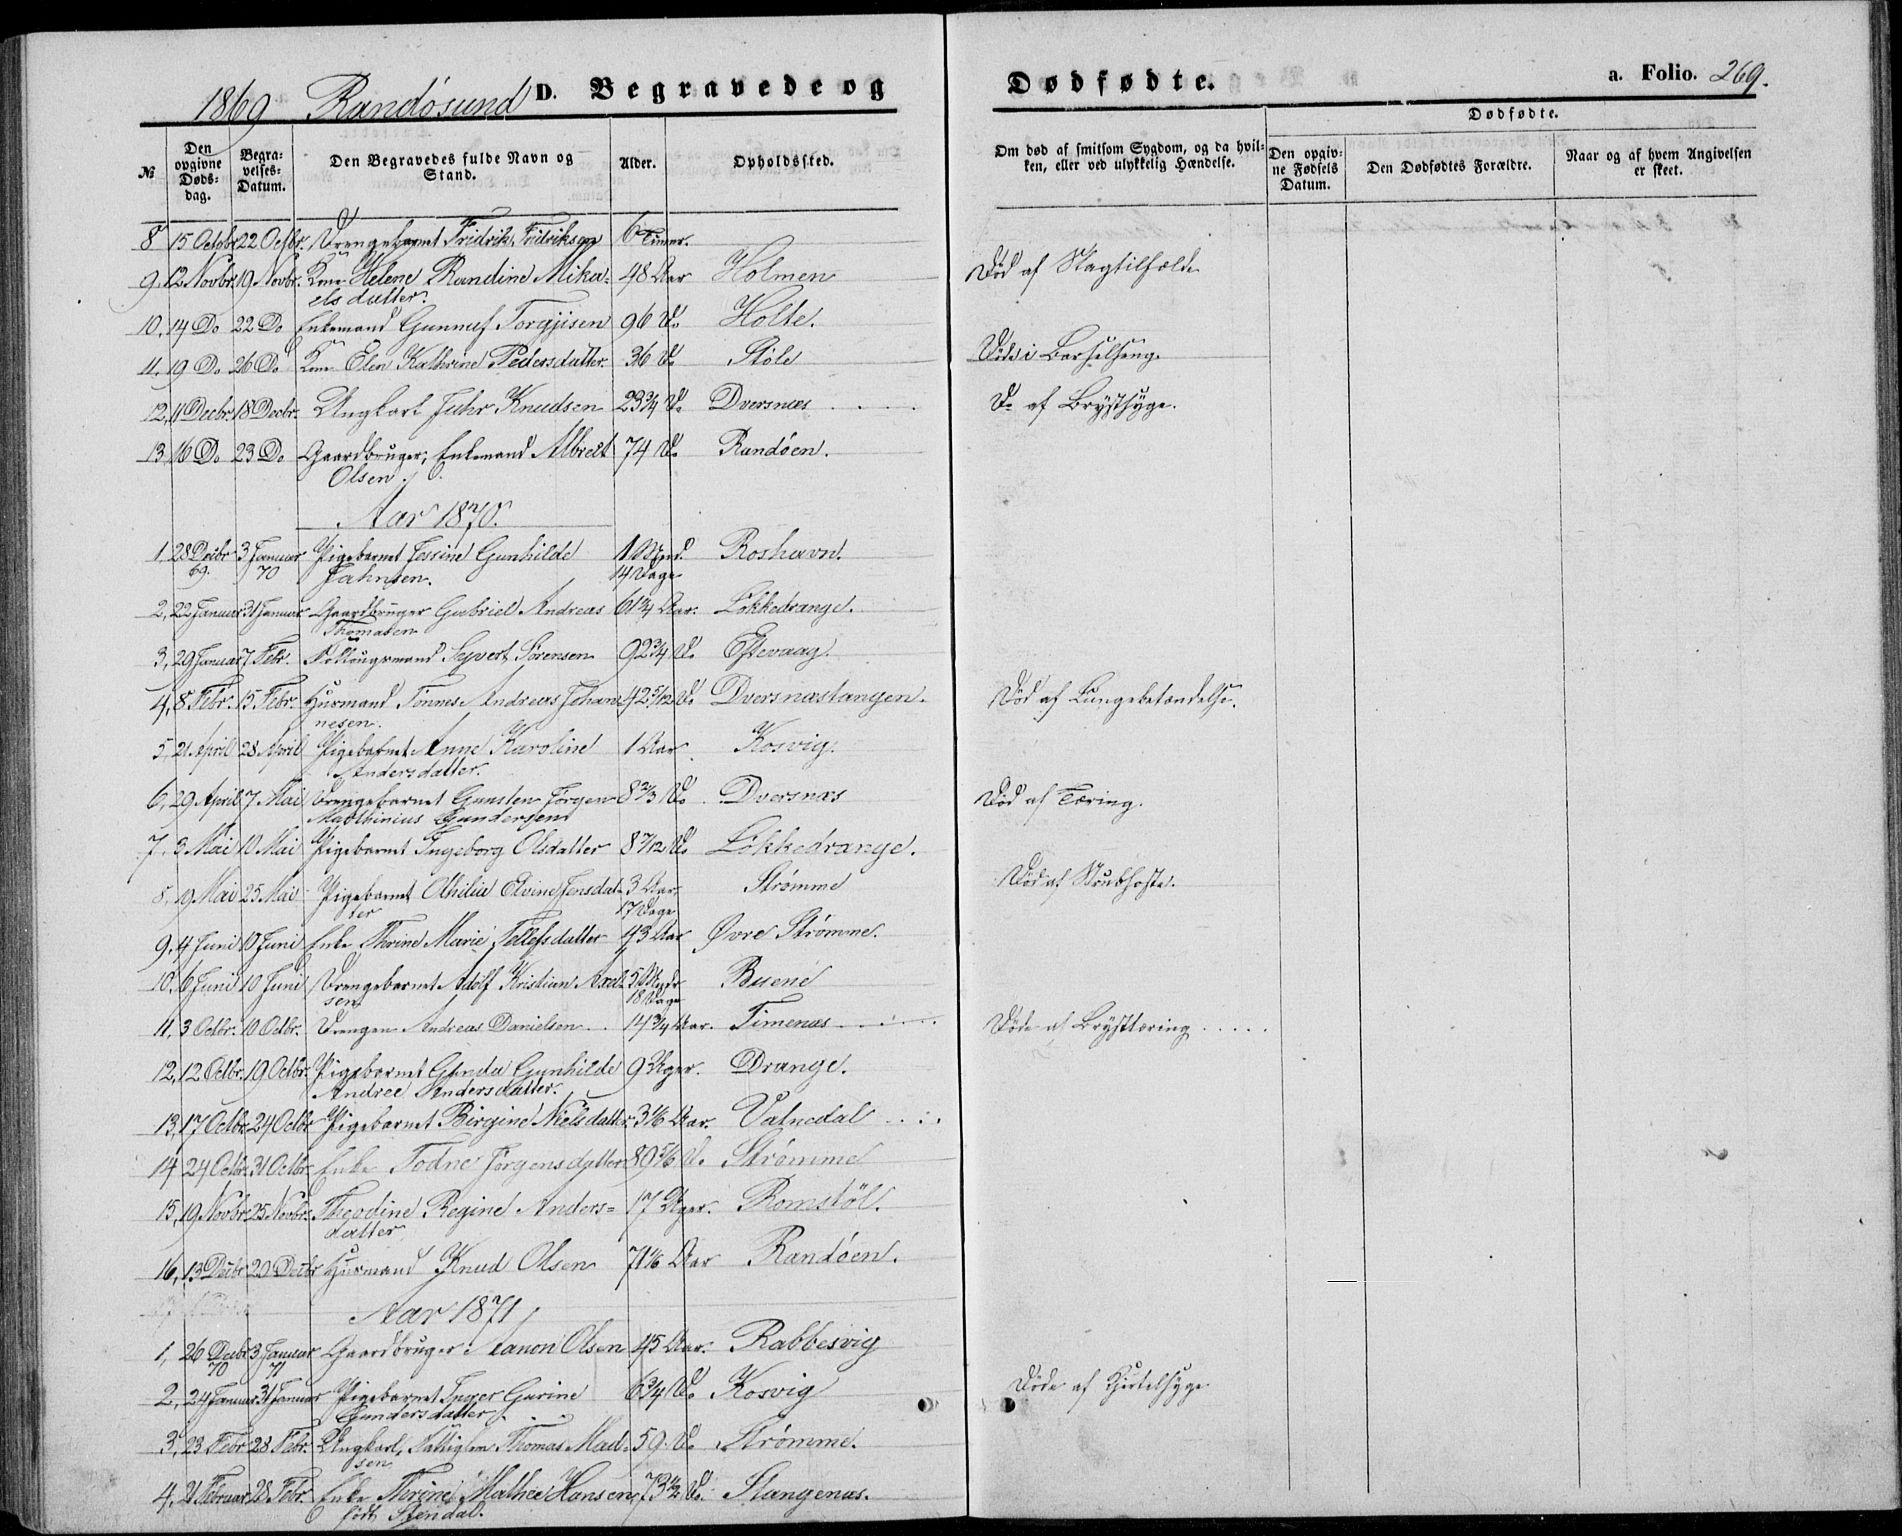 1869 Randøsund D. Begravede og Dødfødte. a. Folio. 269.
№ Den opgivne Døds-dag. Begra-velses-Datum. Den Begravedes fulde Navn og Stand. Alder. Opholdssted. Om død af smitsom Sygdom, og da hvil-ken, eller ved ulykkelig Hændelse. Dødfødte.
Den opgiv-ne Fødsels Datum. Den Dødfødtes Forældre. Naar og af hvem Angivelsen er skeet.
8 15 Octobr 22 Octbr. Drengebarnet Fridrik Fidriksen 6 Timer.
9, 12 Novbr. 19 Novbr. Kone Helene Randine Mika= 48 Aar Holmen Død af Slagtilfælde
elsdatter.
10, 14 Do 22 Do Enkemand Gunnuf Torgjisen 96 Do Holte.
11, 19 Do 26 Do Kone Elen Kathrine Pedersdatter. 36 Do Støle Døde i Barselseng.
12, 11 Decbr. 18 Decbr. Ungkarl Juhr Knudsen 23¾ Do Dversnæs Do af Brystsyge.
13, 16 Do 23 Do Gaardbruger, Enkemand Albrelt 74 Do Randøen.
Olsen.
Aar 1870.
1, 28 Decbr 3 Januar Pigebarnet Jessine Gunhilde 1 Mnd. Roshavn.
69. 70 Jahnsen. 14 Dage
2, 22 Januar 31 Januar Gaardbruger Gabriel Andreas 61¾ Aar. Løkkedrange.
Thomasen
3, 29 Januar 7 Febr. Follougsmand Syvert Sørensen 92¾ Do Eftevaag.
4, 8 Febr. 15 Febr. Husmand Tønnes Andreas Johan 42 5/12 Do Dversnæstangen. Død af Lungebetændelse.
nesen.
5, 21 April 28 April Pigebarnet Anne Karoline 1 Aar Kosvig.
Andersdatter.
6, 29 April 7 Mai Drengebarnet Gunsten Jørgen 8⅔ Do Dversnæs Død af Tæring.
Mathinius Gundersen
7, 3 Mai 10 Mai Pigebarnet Ingeborg Olsdatter 8 7/12 Do Løkkedrange.
8, 19 Mai 25 Mai Pigebarnet Othilia Elvine Jensdat- 3 Aar. Strømme Død af Strubhoste.
ter 17 Dage
9, 4 Juni 10 Juni Enke Thrine Marie Tellefsdatter 43 Aar Øvre Strømme.
10, 6 Juni 10 Juni Drengebarnet Adolf Kristian Axel- 5 Mndr. Buene
sen 18 Dage
11, 3 Octbr. 10 Octbr. Drengen Andreas Danielsen 14¾ Aar. Timenæs Døde af Brysttæring
12, 12 Octbr. 19 Octbr. Pigebarnet Gunda Gunhilde 9 Uger. Drange.
Andree Andersdatter.
13, 17 Octbr. 24 Octbr Pigebarnet Birgine Nielsdatter 3⅙ Aar. Vatnedal
14 24 Octbr. 31 Octbr. Enke Todne Jørgensdatter 89⅚ Do Strømme
15, 19 Novbr. 25 Novbr. Theodine Regine Anders= 17 Uger. Romstøl.
datter
16, 13 Decbr 20 Decbr Husmand Knud Olsen 71⅙ Aar Randøen.
Aar 1871,
1, 26 Decbr 3 Januar Gaardbruger Aanon Olsen 45 Aar. Rabbesvig
70 71
2, 24 Januar 31 Januar Pigebarnet Inger Gurine 6¾ Do Kosvig Døde af Kjertelsyge
Gundersdatter.
3, 23 Febr 28 Febr. Ungkarl, Fattiglem Thomas Mad- 59 Do Strømme.
sen
4, 21 Februar 28 Febr. Enke Therine Mathea Hansen, 73½ Do. Stangenæs.
født Stendal.